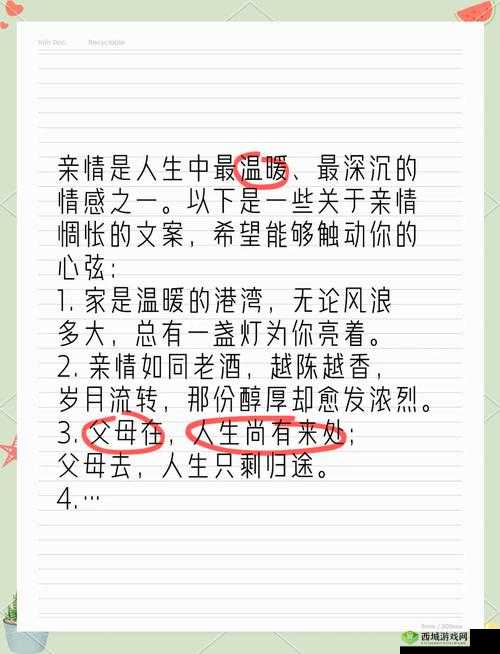 Recyclable
亲情是人生中最温暖、最深沉的
情感之一。以下是一些关于亲情
惆怅的文案，希望能够触动你的
心弦：
1. 家是温暖的港湾，无论风浪
多大，总有一盏灯为你亮着。
2. 亲情如同老酒，越陈越香，
岁月流转，那份醇厚却愈发浓烈。
3. 父母在，人生尚有来处；
父母去，人生只剩归途。
4.…
西城游戏网